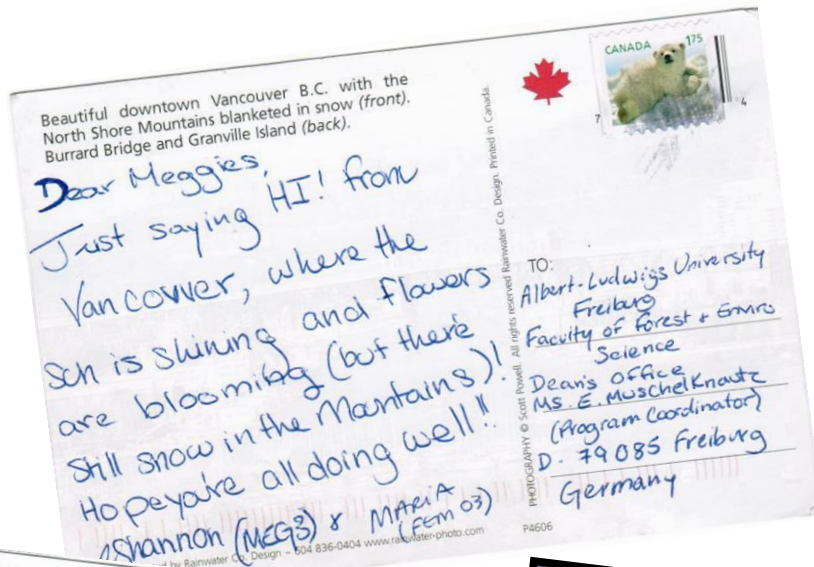 Beautiful downtown Vancouver B.C. with the
North Shore Mountains blanketed in snow (front).
Burrard Bridge and Granville Island (back).
Dear Meggies,
Just saying HI! from
Vancouver, where the
Sun is shining and flowers
are blooming (but there's
still snow in the Mountains)!
Hope you're all doing well!!
Shannon (MEG3) & MARIA
(FEM 03)
by Rainwater Co. Design – 604 836-0404 www.rainwater-photo.com
PHOTOGRAPHY © Scott Powell. All rights reserved Rainwater Co. Design. Printed in Canada.
CANADA 175
7
4
TO:
Albert-Ludwigs University
Freiburg
Faculty of Forest & Enviro
Science
Dean's Office
Ms. E. Muschelknautz
(Program Coordinator)
D. 79085 Freiburg
Germany
P4606